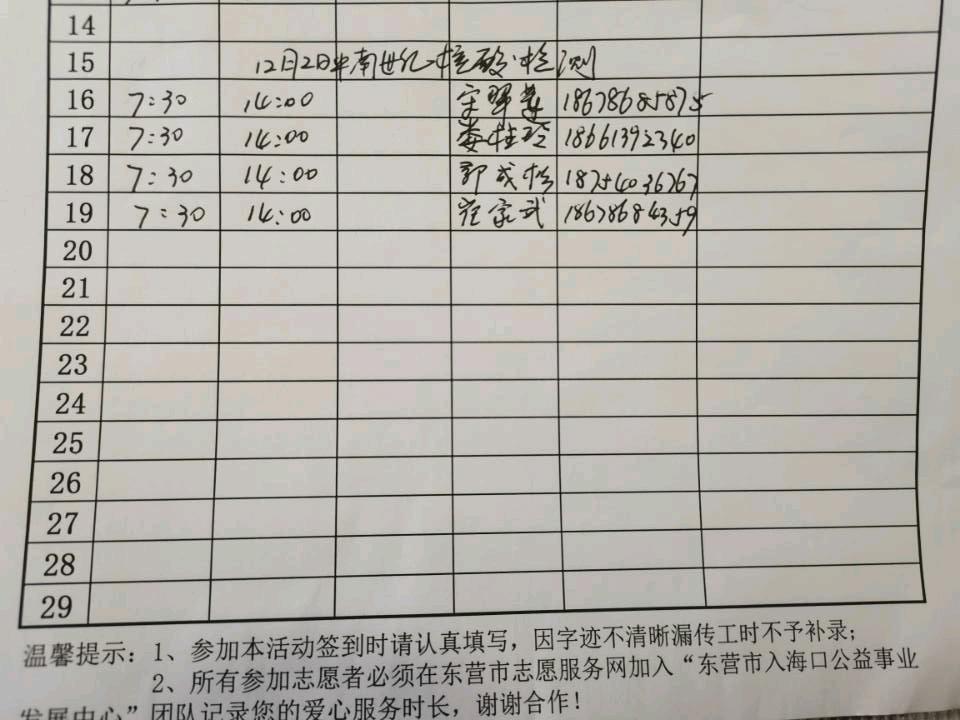 14
15 12月2日中南世纪核酸检测
16 7:30 14:00 18678685875
17 7:30 14:00 娄桂玲 18661392340
18 7:30 14:00 郭成松 18254036767
19 7:30 14:00 崔家武 18678684359
20
21
22
23
24
25
26
27
28
29
温馨提示：1、参加本活动签到时请认真填写，因字迹不清晰漏传工时不予补录；
2、所有参加志愿者必须在东营市志愿服务网加入“东营市入海口公益事业
发展中心”团队记录您的爱心服务时长，谢谢合作！